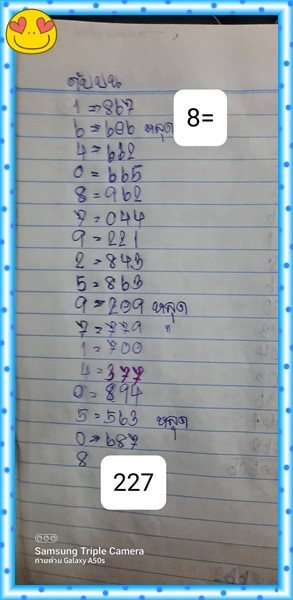 ดับบน
1 = 867
6 = 606 หลุด
8=
4 = 662
0 = 665
8 = 962
7 = 044
9 = 221
2 = 843
5 = 863
9 = 209 หลุด
7 = 779 "
1 = 700
4 = 377
0 = 894
5 = 563 หลุด
0 = 687
8
227
Samsung Triple Camera
ถ่ายด้วย Galaxy A50s